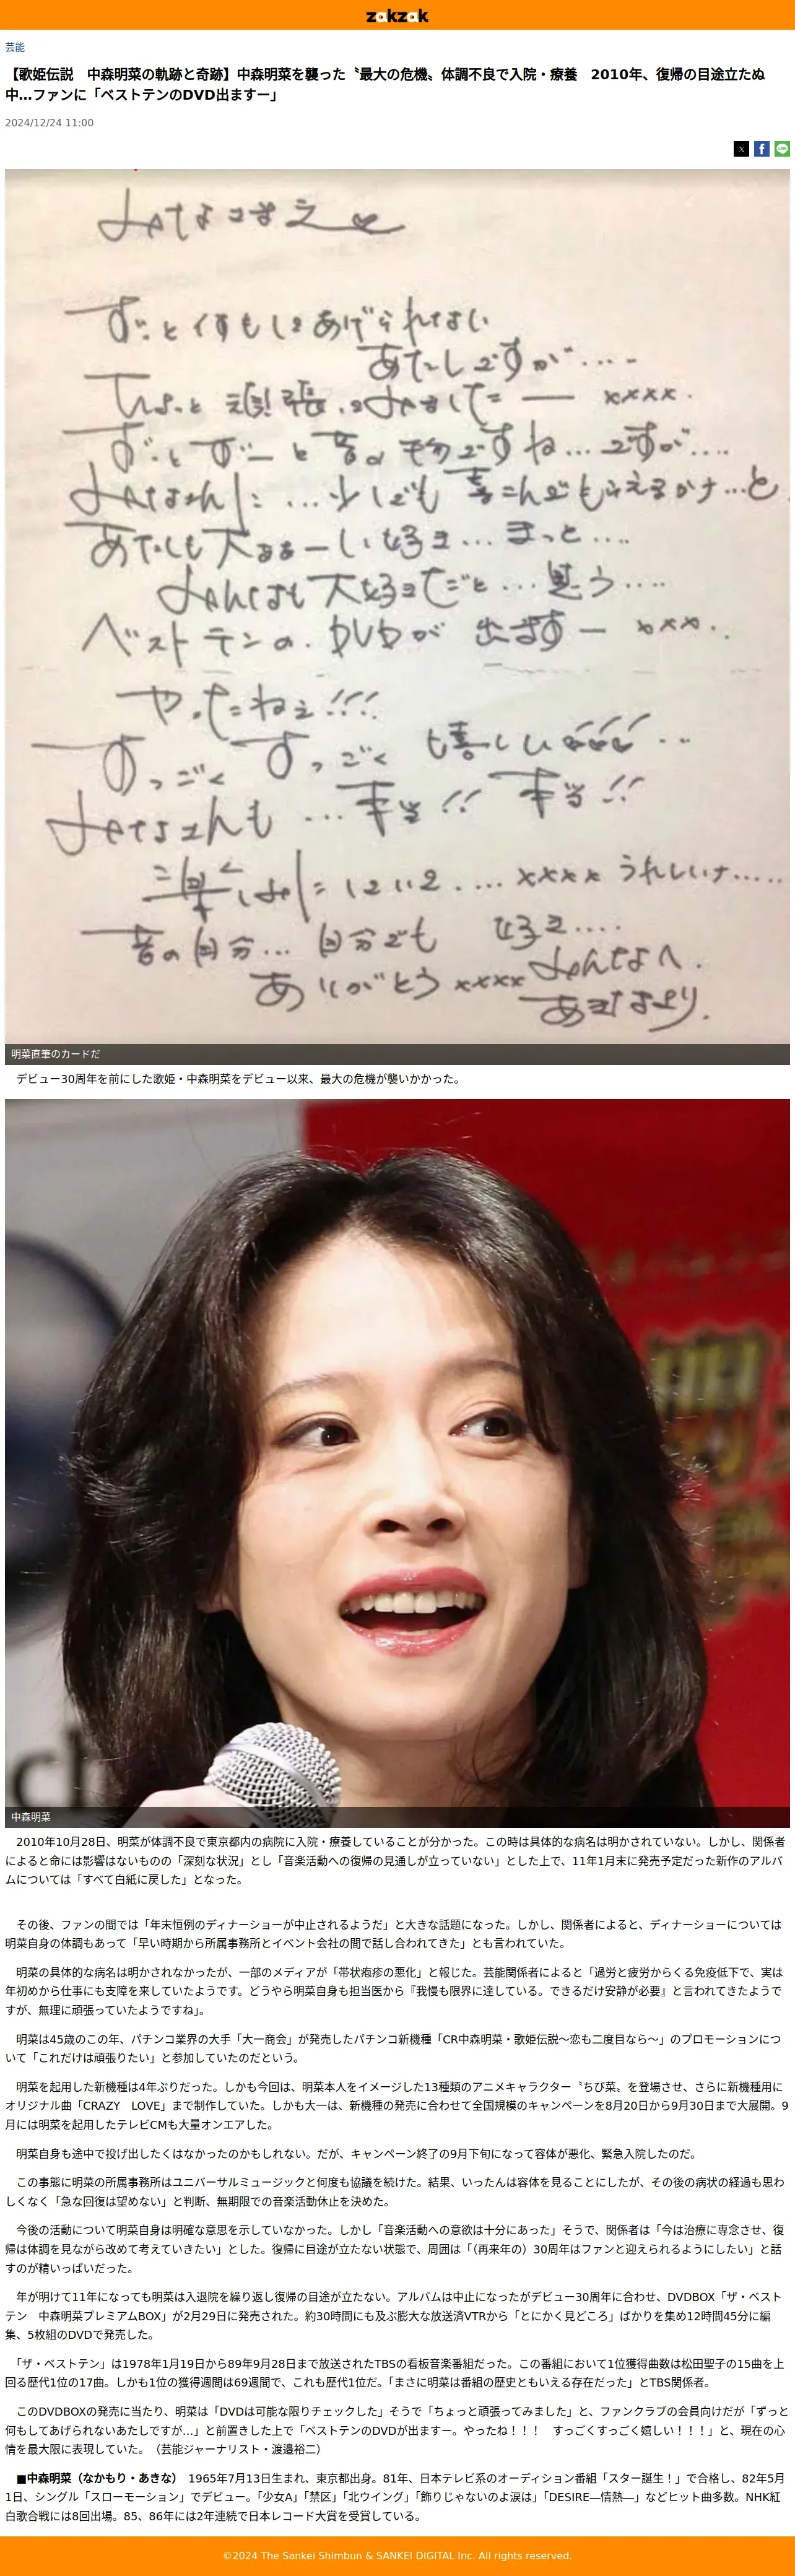 zakzak
芸能
【歌姫伝説　中森明菜の軌跡と奇跡】中森明菜を襲った〝最大の危機〟体調不良で入院・療養　2010年、復帰の目途立たぬ
中…ファンに「ベストテンのDVD出ますー」
2024/12/24 11:00
みんなさまえ
ずーと何もしてあげられない
あたしですが‥‥
ちょっと頑張ってみました ー xxxx.
ずーとずーと昔の物ですね…ですが‥‥
みんなさんに…少しでも喜こんでもらえるかナ…と
みんなも大好きだと…思う‥‥
ベストテンの.DVDが出ますー xxx..
やったねぇ!!!
すっごくすっごく嬉しい!!!…
みなさんも…本当!! 本当!!
xxxx うれしいナ……
昔の自分…自分でも 好き‥‥
ありがとう xxxx みんなへ.
あきなより.
明菜直筆のカードだ
デビュー30周年を前にした歌姫・中森明菜をデビュー以来、最大の危機が襲いかかった。
中森明菜
2010年10月28日、明菜が体調不良で東京都内の病院に入院・療養していることが分かった。この時は具体的な病名は明かされていない。しかし、関係者
によると命には影響はないものの「深刻な状況」とし「音楽活動への復帰の見通しが立っていない」とした上で、11年1月末に発売予定だった新作のアルバ
ムについては「すべて白紙に戻した」となった。
その後、ファンの間では「年末恒例のディナーショーが中止されるようだ」と大きな話題になった。しかし、関係者によると、ディナーショーについては
明菜自身の体調もあって「早い時期から所属事務所とイベント会社の間で話し合われてきた」とも言われていた。
明菜の具体的な病名は明かされなかったが、一部のメディアが「帯状疱疹の悪化」と報じた。芸能関係者によると「過労と疲労からくる免疫低下で、実は
年初めから仕事にも支障を来していたようです。どうやら明菜自身も担当医から『我慢も限界に達している。できるだけ安静が必要』と言われてきたようで
すが、無理に頑張っていたようですね」。
明菜は45歳のこの年、パチンコ業界の大手「大一商会」が発売したパチンコ新機種「CR中森明菜・歌姫伝説〜恋も二度目なら〜」のプロモーションにつ
いて「これだけは頑張りたい」と参加していたのだという。
明菜を起用した新機種は4年ぶりだった。しかも今回は、明菜本人をイメージした13種類のアニメキャラクター〝ちび菜〟を登場させ、さらに新機種用に
オリジナル曲「CRAZY　LOVE」まで制作していた。しかも大一は、新機種の発売に合わせて全国規模のキャンペーンを8月20日から9月30日まで大展開。9
月には明菜を起用したテレビCMも大量オンエアした。
明菜自身も途中で投げ出したくはなかったのかもしれない。だが、キャンペーン終了の9月下旬になって容体が悪化、緊急入院したのだ。
この事態に明菜の所属事務所はユニバーサルミュージックと何度も協議を続けた。結果、いったんは容体を見ることにしたが、その後の病状の経過も思わ
しくなく「急な回復は望めない」と判断、無期限での音楽活動休止を決めた。
今後の活動について明菜自身は明確な意思を示していなかった。しかし「音楽活動への意欲は十分にあった」そうで、関係者は「今は治療に専念させ、復
帰は体調を見ながら改めて考えていきたい」とした。復帰に目途が立たない状態で、周囲は「（再来年の）30周年はファンと迎えられるようにしたい」と話
すのが精いっぱいだった。
年が明けて11年になっても明菜は入退院を繰り返し復帰の目途が立たない。アルバムは中止になったがデビュー30周年に合わせ、DVDBOX「ザ・ベスト
テン　中森明菜プレミアムBOX」が2月29日に発売された。約30時間にも及ぶ膨大な放送済VTRから「とにかく見どころ」ばかりを集め12時間45分に編
集、5枚組のDVDで発売した。
「ザ・ベストテン」は1978年1月19日から89年9月28日まで放送されたTBSの看板音楽番組だった。この番組において1位獲得曲数は松田聖子の15曲を上
回る歴代1位の17曲。しかも1位の獲得週間は69週間で、これも歴代1位だ。「まさに明菜は番組の歴史ともいえる存在だった」とTBS関係者。
このDVDBOXの発売に当たり、明菜は「DVDは可能な限りチェックした」そうで「ちょっと頑張ってみました」と、ファンクラブの会員向けだが「ずっと
何もしてあげられないあたしですが…」と前置きした上で「ベストテンのDVDが出ますー。やったね！！！　すっごくすっごく嬉しい！！！」と、現在の心
情を最大限に表現していた。（芸能ジャーナリスト・渡邉裕二）
■中森明菜（なかもり・あきな）　1965年7月13日生まれ、東京都出身。81年、日本テレビ系のオーディション番組「スター誕生！」で合格し、82年5月
1日、シングル「スローモーション」でデビュー。「少女A」「禁区」「北ウイング」「飾りじゃないのよ涙は」「DESIRE―情熱―」などヒット曲多数。NHK紅
白歌合戦には8回出場。85、86年には2年連続で日本レコード大賞を受賞している。
©2024 The Sankei Shimbun & SANKEI DIGITAL Inc. All rights reserved.